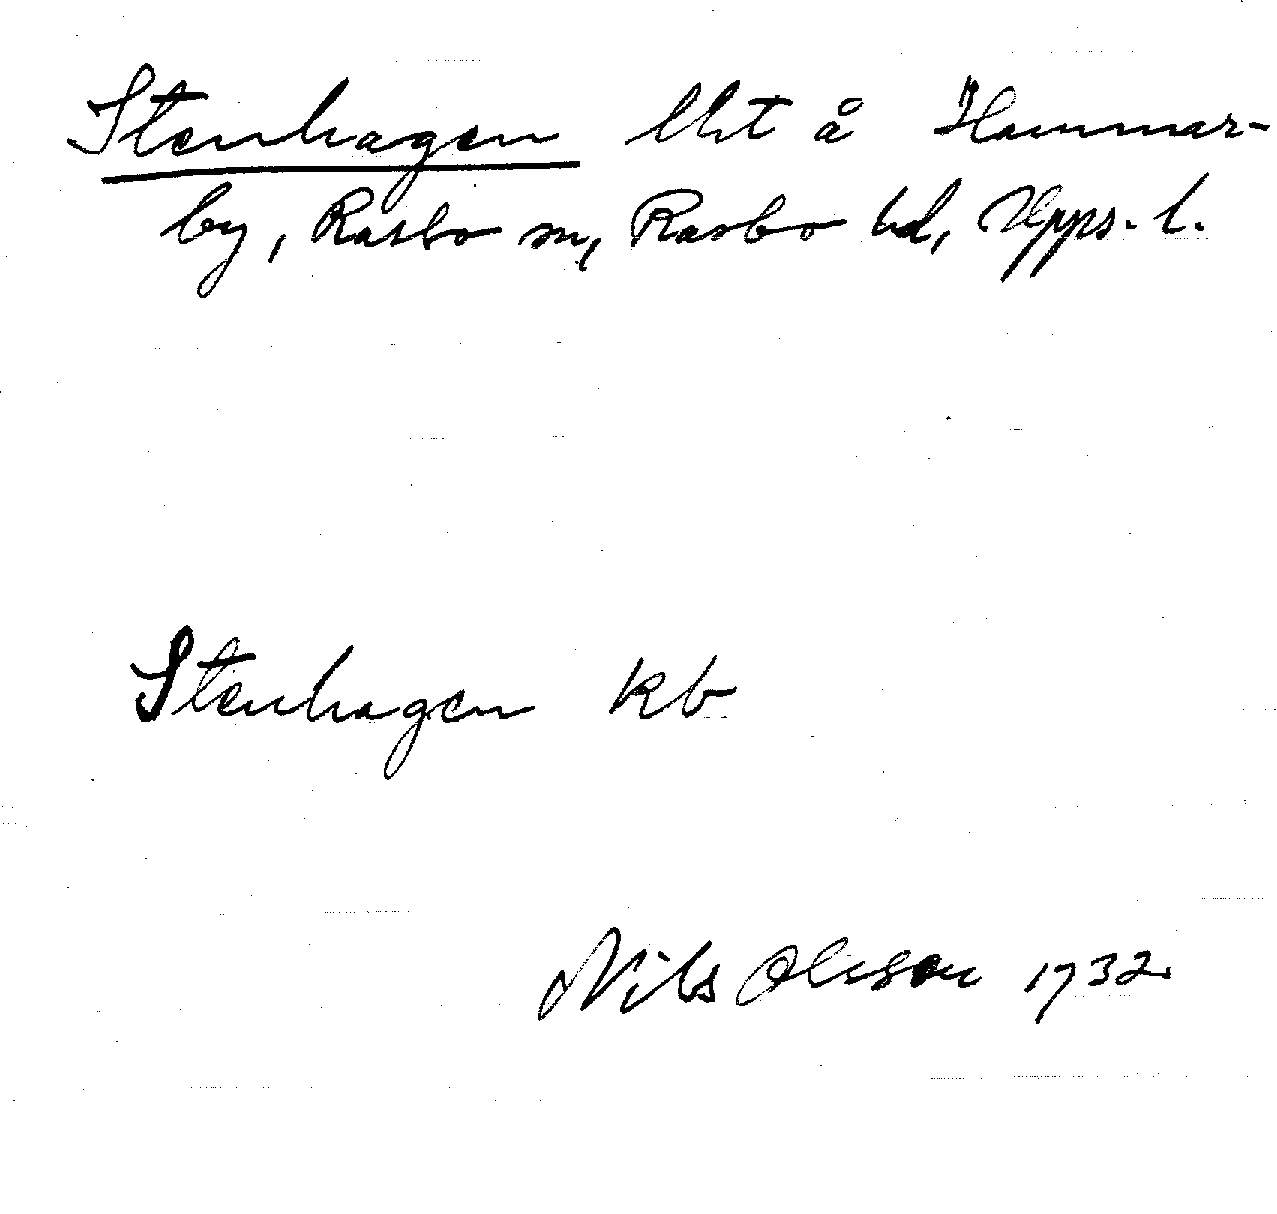 Stenhagen lht å Hammar-
by, Rasbo sn, Rasbo hd, Upps. l.
Stenhagen kb
Nils Olsson 1932